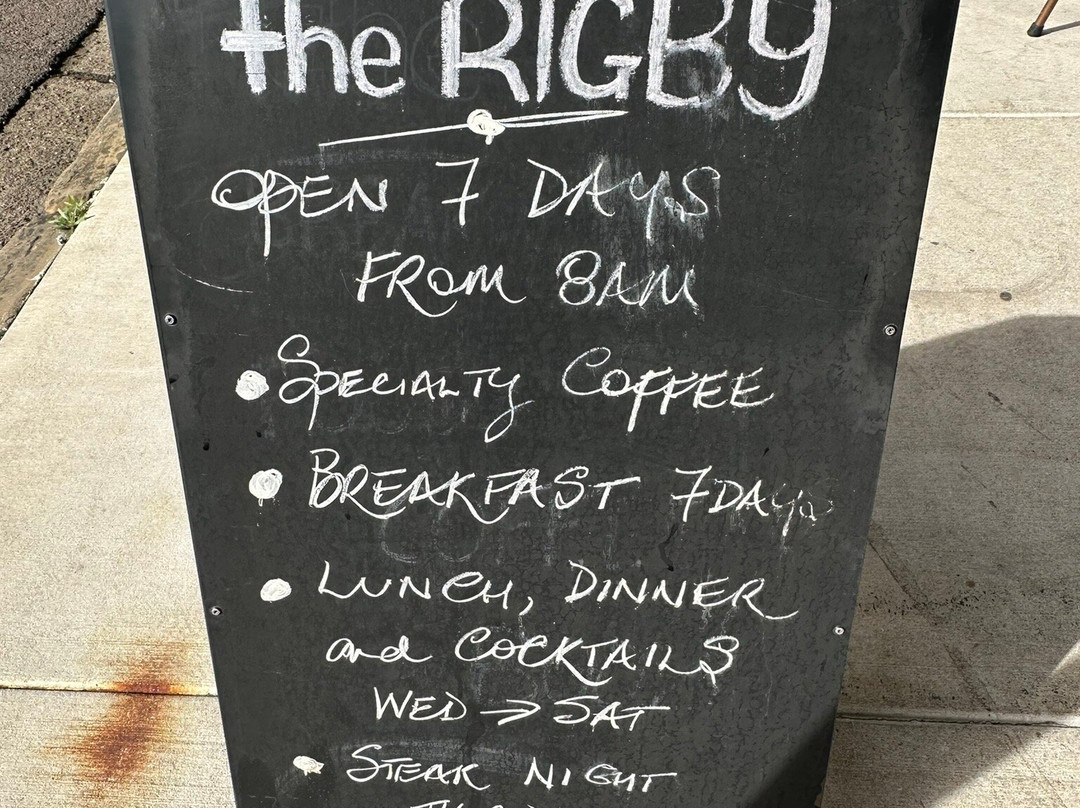 the RIGBY
OPEN 7 DAYS
FROM 8AM
• SPECIALTY COFFEE
• BREAKFAST 7 DAYS
• LUNCH, DINNER
and COCKTAILS
WED → SAT
• STEAK NIGHT